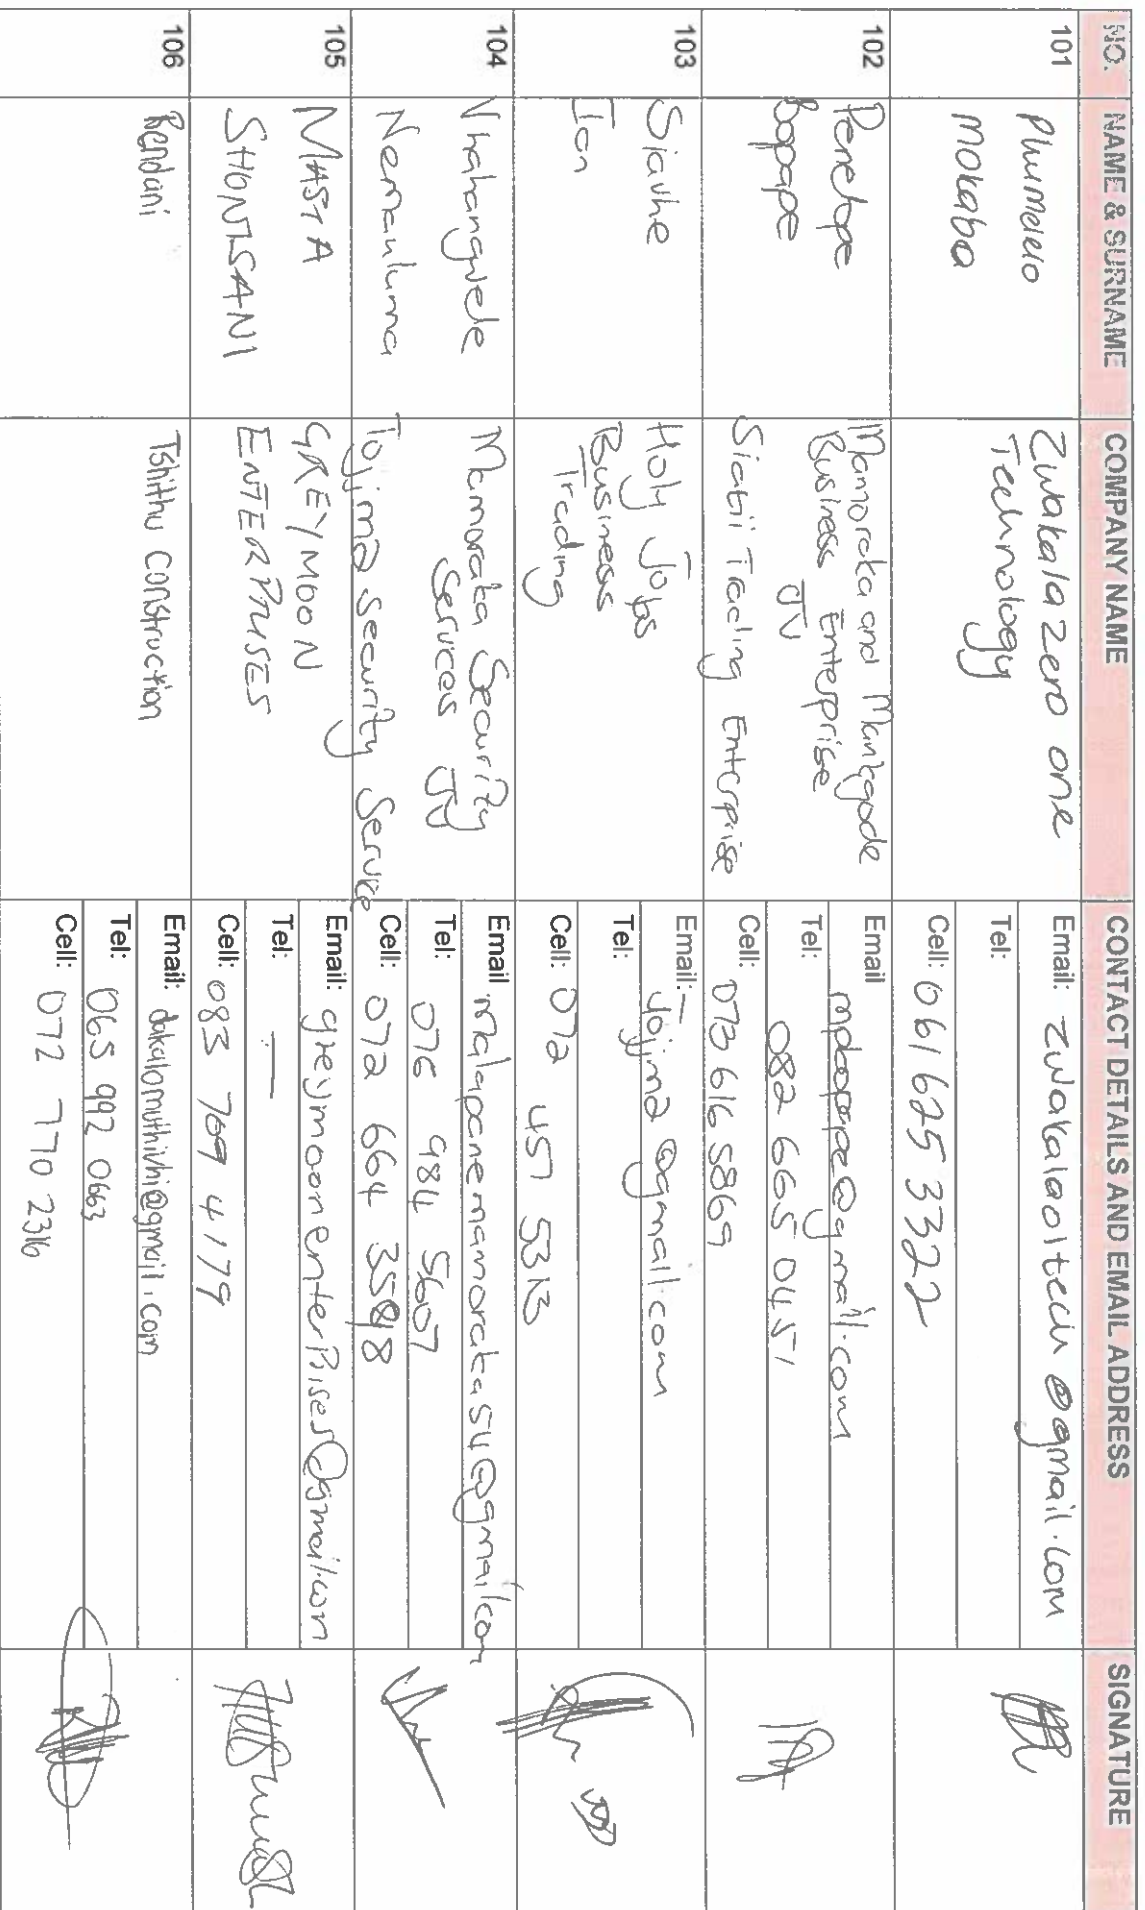 NO. NAME & SURNAME COMPANY NAME CONTACT DETAILS AND EMAIL ADDRESS SIGNATURE
101
Phumelelo
Mokaba
Zwakala Zero one
Technology
Email: zwakalaoltech@gmail.com
Tel:
Cell: 061 625 3322
102
Penelope
Bopape
Mamoraka and Mankgode
Business Enterprise
JV
Siatii Trading Enterprise
Email
Tel: 082 665 0451
Cell: 073 616 5869
103
Siavhe
Ian
Holy Jobs
Business
Trading
Email: Tojima@gmail.com
Tel:
Cell: 072 457
104
Vhahangwele
Nemauluma
Mamoraka Security
Services JV
Tojima Security Service
Email malapanemamoraka54@gmail.com
Tel: 076 984 5607
Cell: 072 664
105
MASTA
SHONISANI
GREYMOON
ENTERPRISES
Email: greymoonenterprises@gmail.com
Tel: —
Cell: 083 769 4179
106
Rendani
Tshithu Construction
Email: dakalomuthivhi@gmail.com
Tel: 065 992 0663
Cell: 072 770 2316